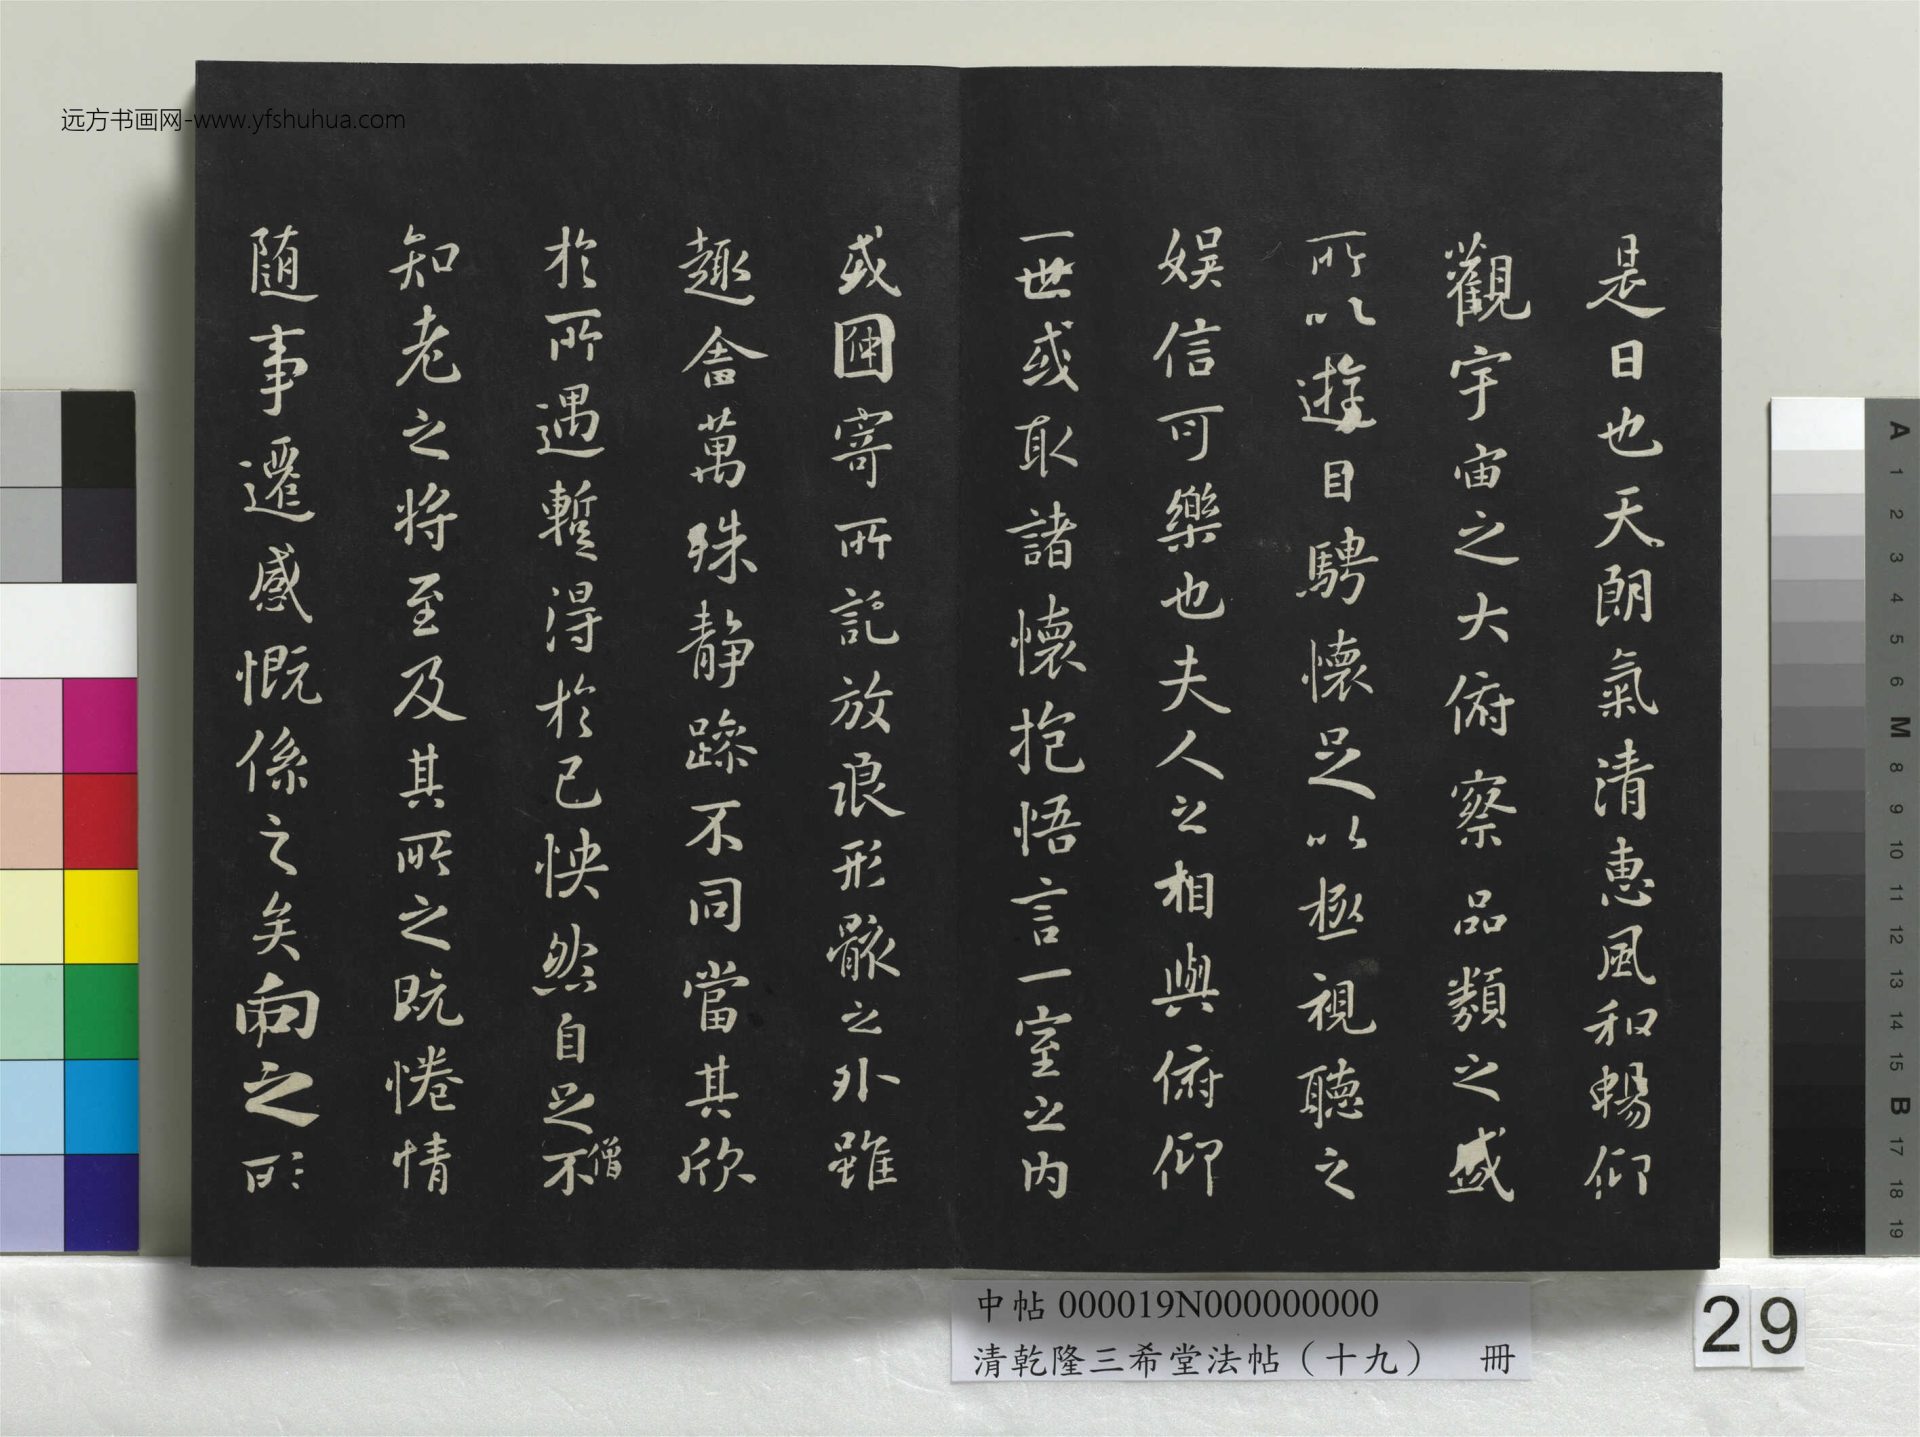 远方书画网-www.yfshuhua.com
是日也天朗氣清惠風和暢仰
觀宇宙之大俯察品類之盛
所以遊目騁懷足以極視聽之
娛信可樂也夫人之相與俯仰
一世或取諸懷抱悟言一室之內
或因寄所託放浪形骸之外雖
趣舍萬殊静躁不同當其欣
於所遇暫得於己怏然自足不
僧
知老之将至及其所之既惓情
随事遷感慨係之矣向之所
中帖 000019N000000000
清乾隆三希堂法帖（十九） 冊
29
A
1
2
3
4
5
6
M
8
9
10
11
12
13
14
15
B
17
18
19